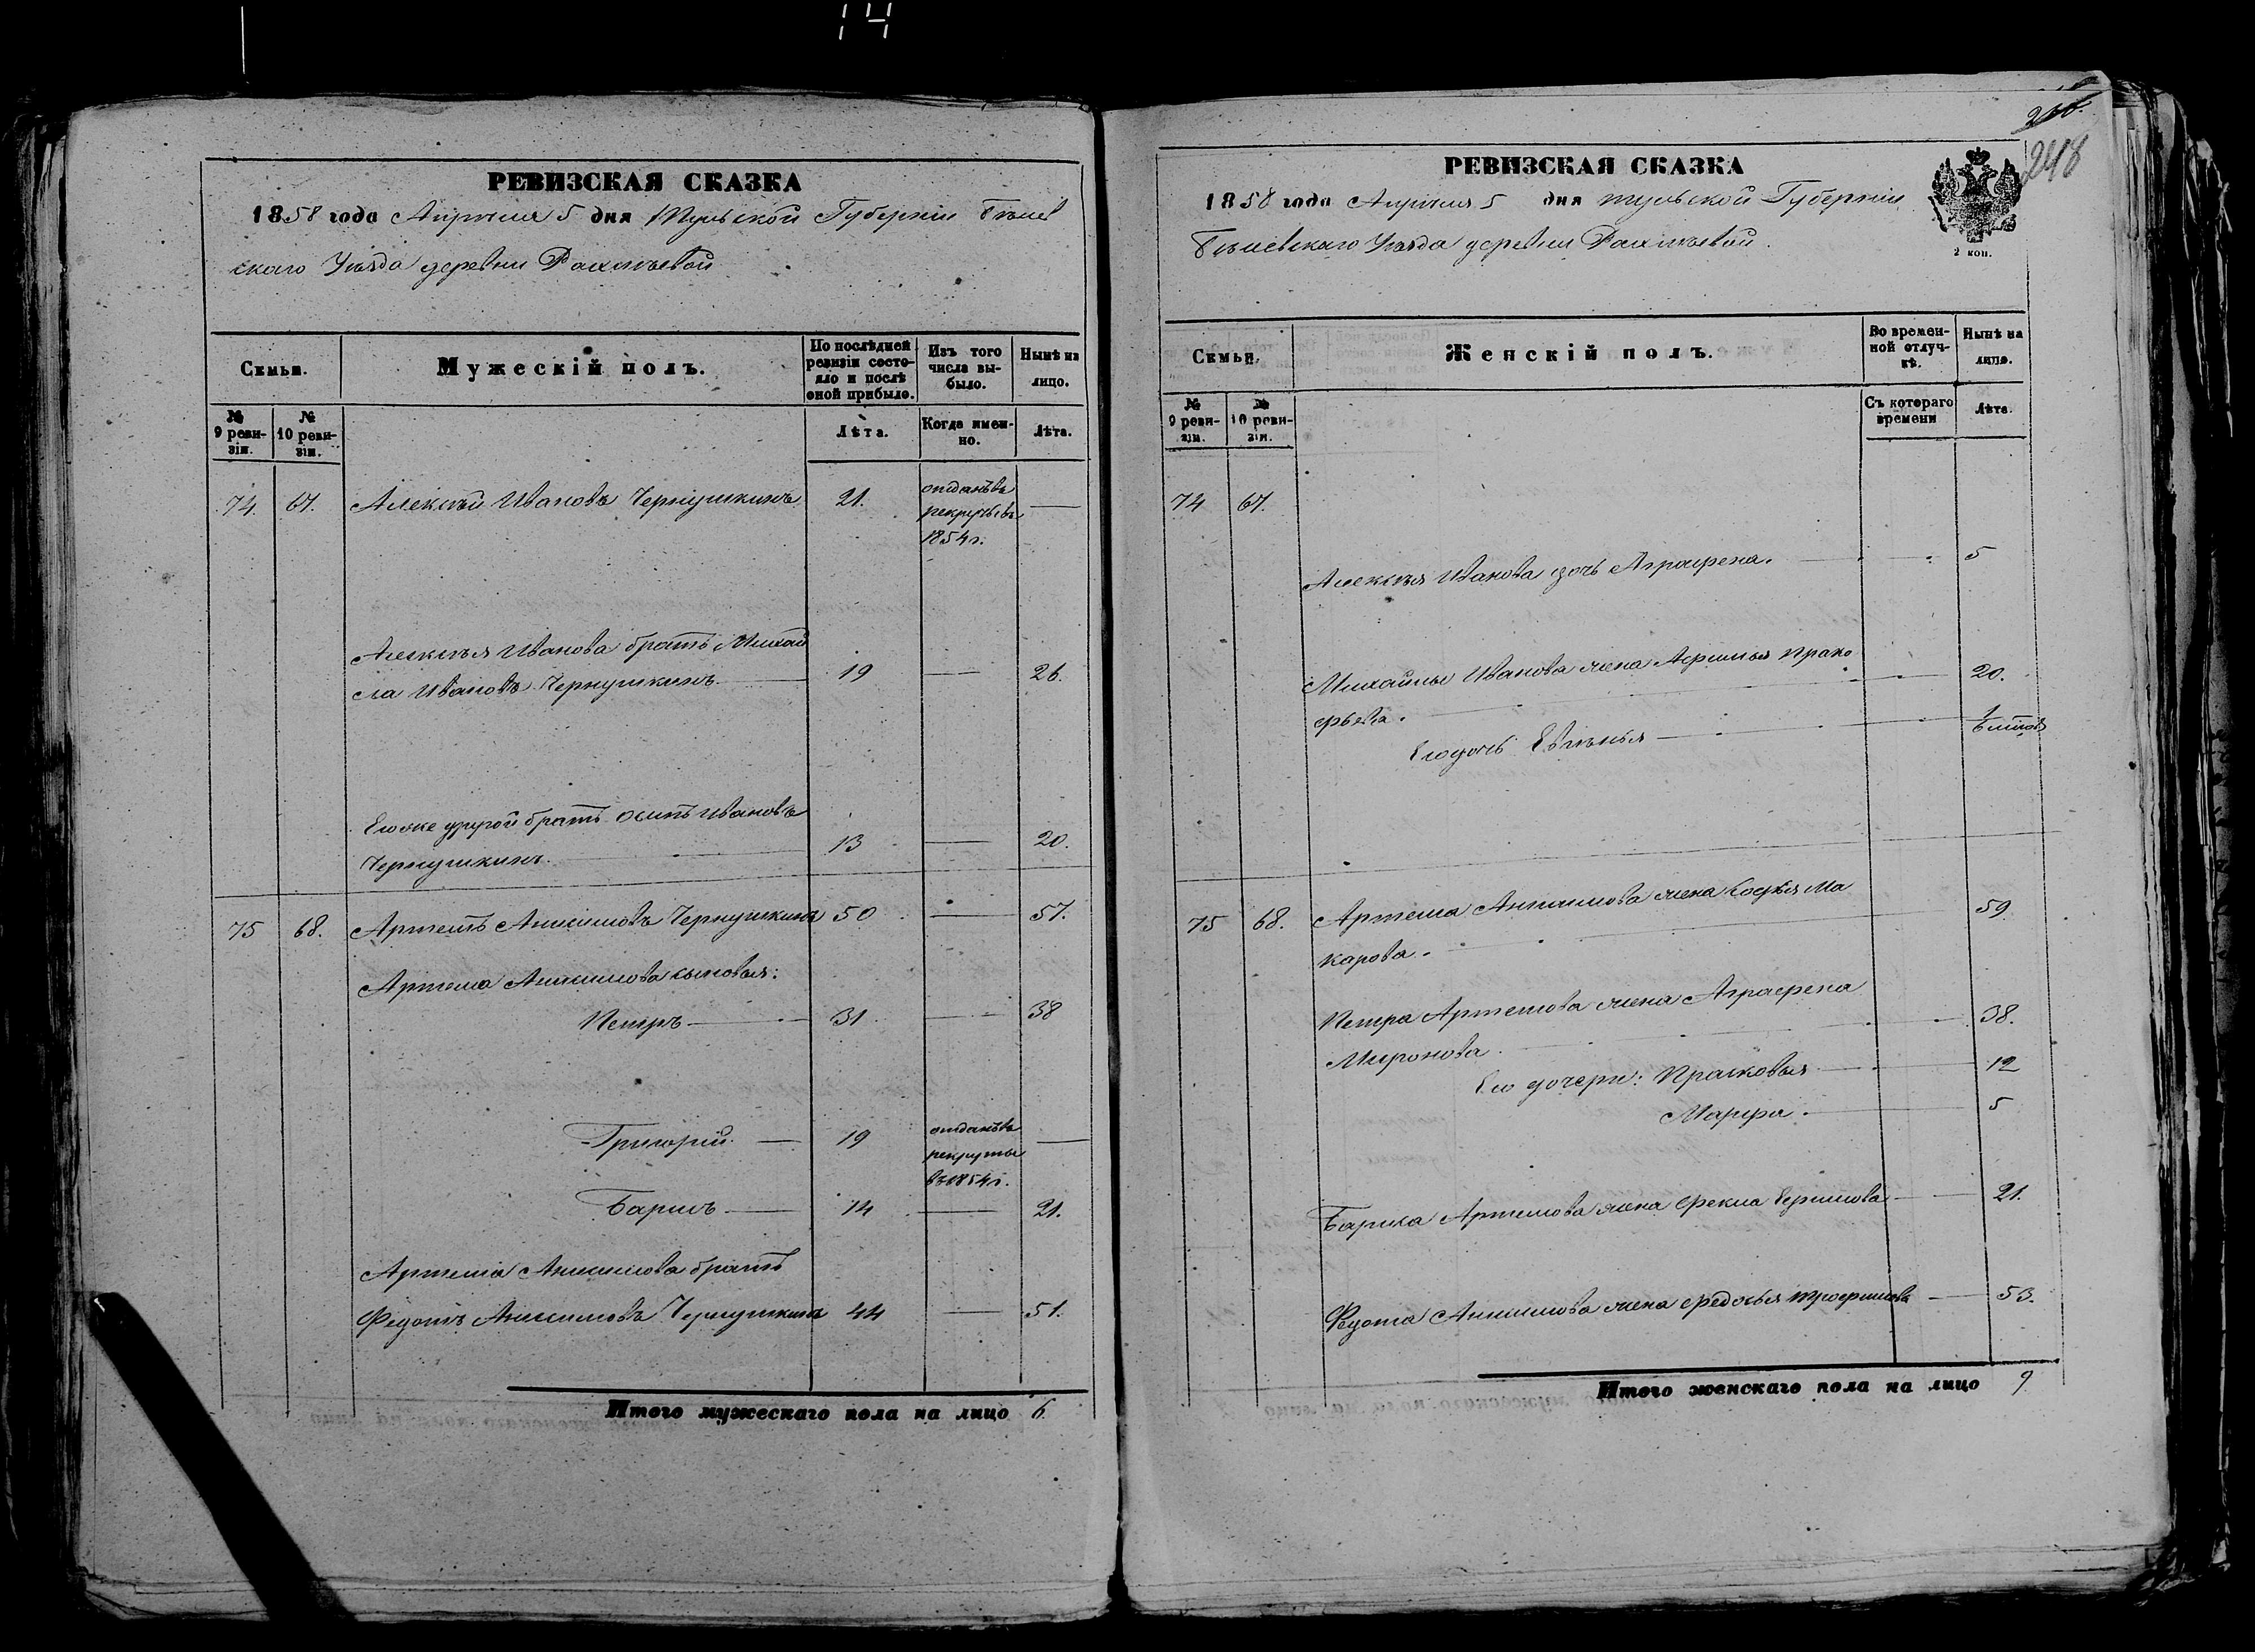 14
РЕВИЗСКАЯ СКАЗКА
1858 года Апрѣля 5 дня Тульской Губерніи Бѣлев
скаго Уѣзда деревни
Семьи.
Мужескій полъ.
По послѣдней
ревизіи состо-
яло и послѣ
оной прибыло.
Изъ того
числа вы-
было.
Нынѣ на
лицо.
№
9 реви-
зіи.
№
10 реви-
зіи.
Лѣта.
Когда имен-
но.
Лѣта.
74 67. Алексѣй Ивановъ Чернушкинъ 21. отданъ въ
рекруты въ
1854 г.
Алексѣя Иванова братъ Михай
ла Ивановъ Чернушкинъ. 19 26.
Его же другой братъ Осипъ Ивановъ
Чернушкинъ. 13 20.
75 68. Артемъ Анисимовъ Чернушкинъ 50 57.
Артема Анисимова сыновья:
Петръ 31 38
Григорій. 19 отданъ въ
рекруты
въ 1854 г.
Барисъ 14 21.
Артема Анисимова братъ
Федотъ Анисимовъ Чернушкинъ 44 51.
Итого мужескаго пола на лицо 6
248
РЕВИЗСКАЯ СКАЗКА
1858 года Апрѣля 5 дня Тульской Губерніи
Бѣлевскаго Уѣзда деревни
2 коп.
Семьи.
Женскій полъ.
Во времен-
ной отлуч-
кѣ.
Нынѣ на
лицо.
№
9 реви-
зіи.
№
10 реви-
зіи.
Съ котораго
времени
Лѣта.
74 67.
Алексѣя Иванова дочь Аграфена. 5
Михайлы Иванова жена Афимья Проко
фьева. 20.
Его дочь 1
75 68. Артема Анисимова жена Софья Ма
карова. 59
Петра Артемова жена Аграфена
Миронова. 38.
Его дочери: Прасковья 12
Марфа. 5
Бариса Артемова жена Фекла Ефимова 21.
Федота Анисимова жена Федосья Трофимова 53.
Итого женскаго пола на лицо 9